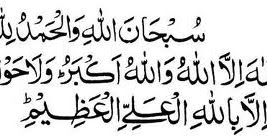 سُبْحَانَ اللهِ وَالْحَمْدُ لِلّٰ
اِلَّا اللهُ وَاللهُ اَكْبَرُ وَلَا حَوْلَ
اِلَّا بِاللهِ الْعَلِيِّ الْعَظِيْمِ